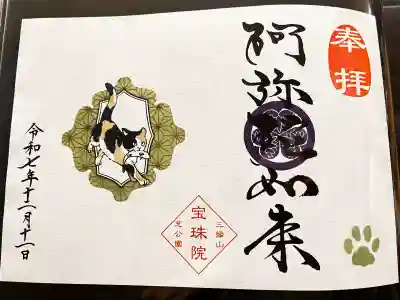 奉拝
阿弥陀如来
三縁山
宝珠院
芝公園
令和七年十一月十一日